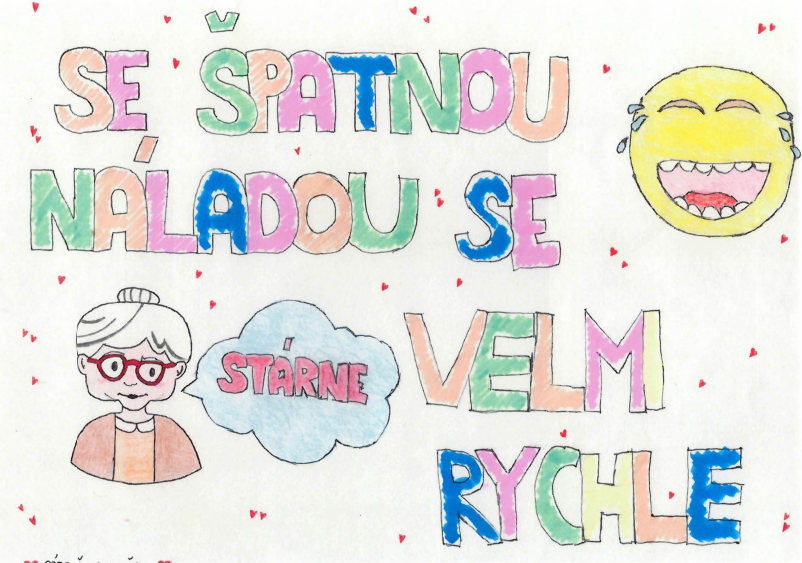 SE ŠPATNOU
NÁLADOU SE
STÁRNE VELMI
RYCHLE